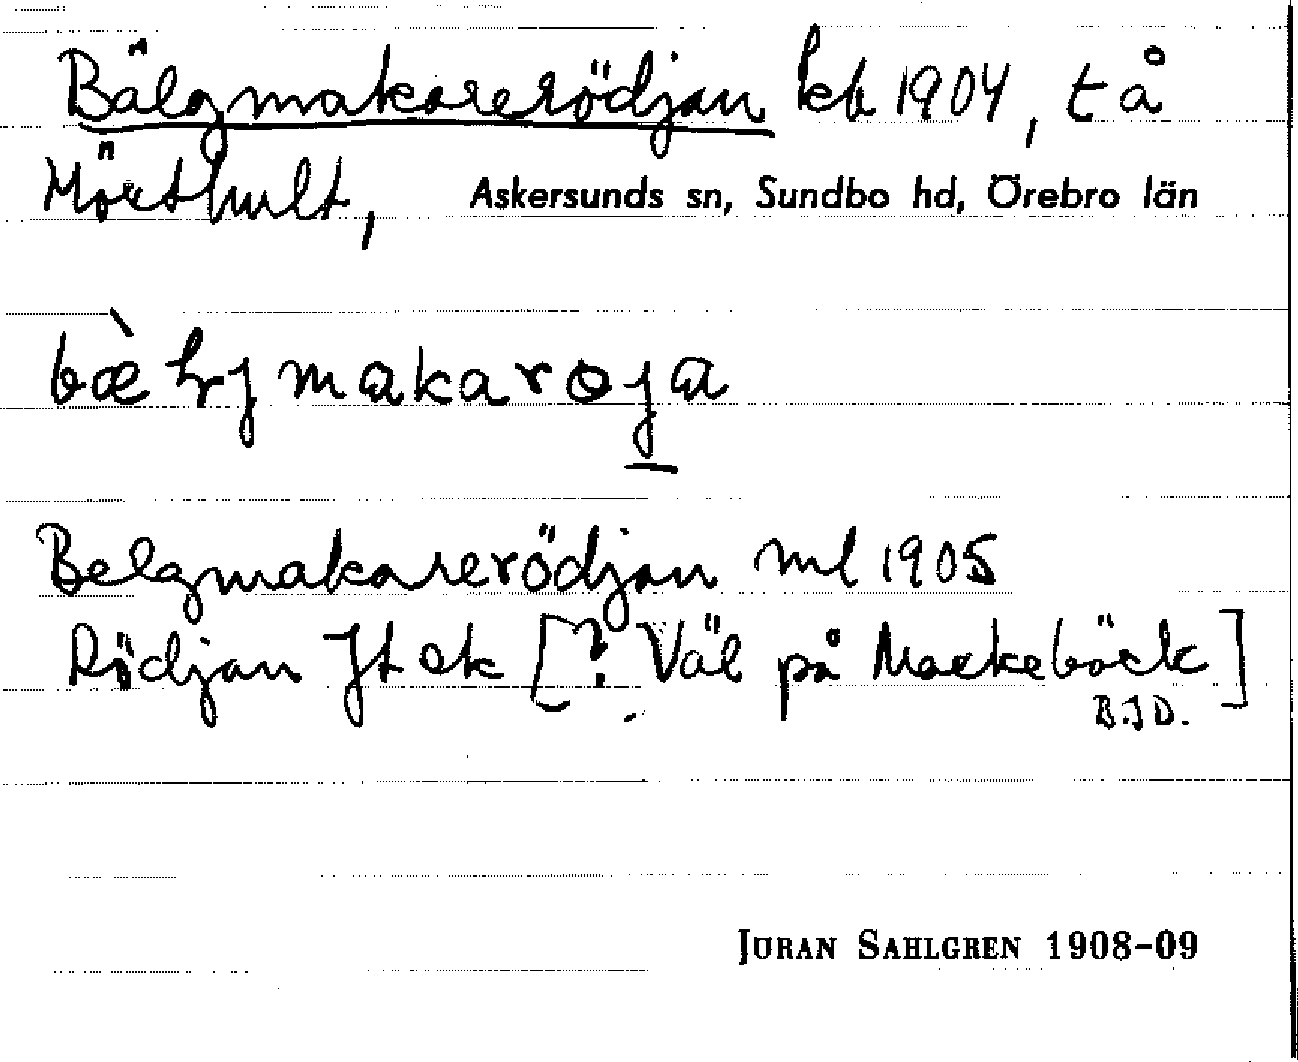 Bälgmakarerödjan kb 1904, t å
Mörthult, Askersunds sn, Sundbo hd, Örebro län
Belgmakarerödjan ml 1905
Rödjan Jt ek [? Väl på Markebäck]
B.J D.
JÖRAN SAHLGREN 1908-09